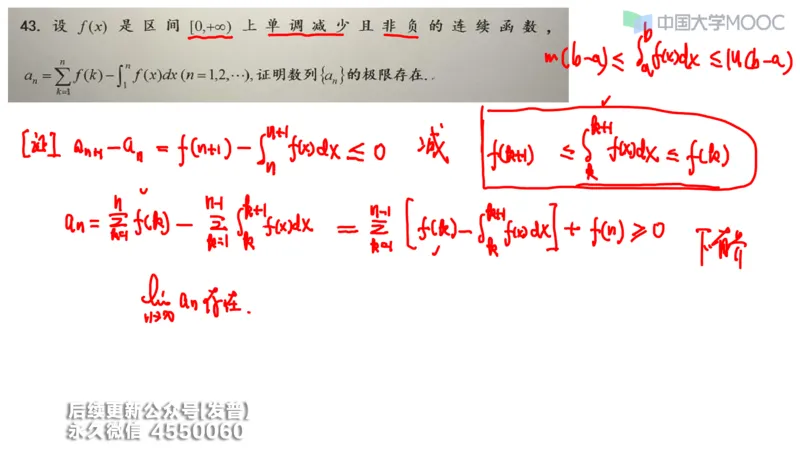 中国大学MOOC
43. 设 f(x) 是区间 [0,+∞) 上单调减少且非负的连续函数，
a_n = ∑_{k=1}^{n} f(k) − ∫_1^n f(x)dx (n=1,2,⋯), 证明数列{a_n}的极限存在.
m(b-a) ≤ ∫_a^b f(x)dx ≤ M(b-a)
[证] a_{n+1} - a_n = f(n+1) - ∫_n^{n+1} f(x)dx ≤ 0 减
f(k+1) ≤ ∫_k^{k+1} f(x)dx ≤ f(k)
a_n = ∑_{k=1}^{n} f(k) - ∑_{k=1}^{n-1} ∫_k^{k+1} f(x)dx = ∑_{k=1}^{n-1} [f(k) - ∫_k^{k+1} f(x)dx] + f(n) ≥ 0 下有界
lim_{n→∞} a_n 存在.
后续更新公众号[发普]
永久微信 4550060